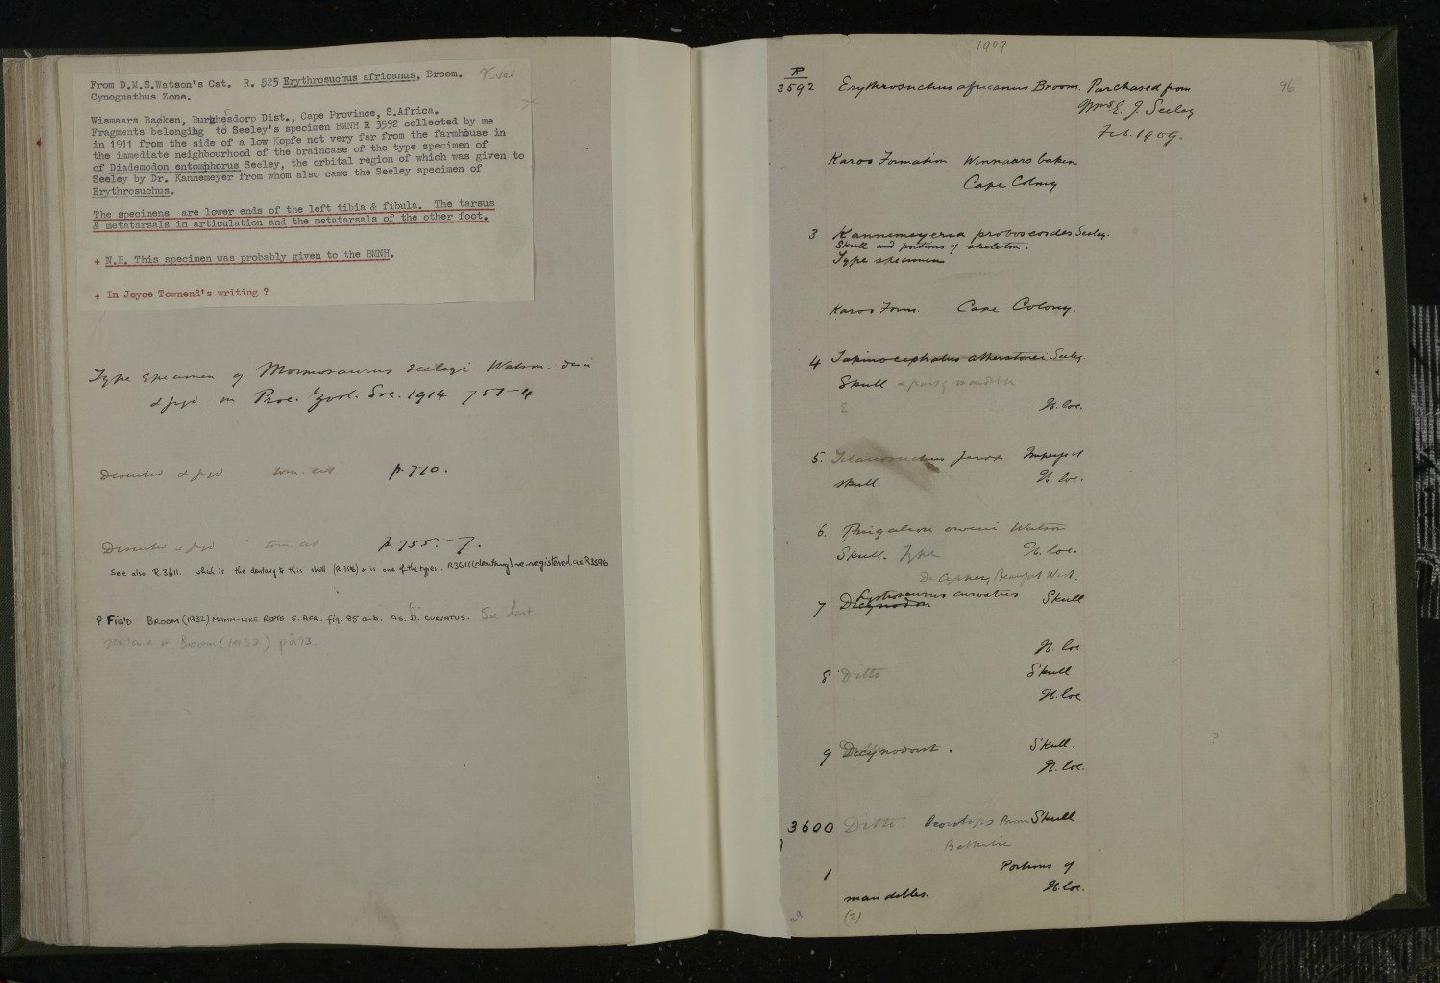 From D.M.S.Watson's Cat. R. 525 Erythrosuchus africanus, Broom.
Cynognathus Zone.
Wismaars Backen, Burghesdorp Dist., Cape Province, S.Africa.
Fragments belonging to Seeley's specimen BMNH R 3592 collected by me
in 1911 from the side of a low Kopfe not very far from the farmhouse in
the immediate neighbourhood of the braincase of the type specimen of
of Diademodon entomphorus Seeley, the orbital region of which was given to
Seeley by Dr. Kannemeyer from whom also came the Seeley specimen of
Erythrosuchus.
The specimens are lower ends of the left tibia & fibula. The tarsus
& metatarsals in articulation and the metatarsals of the other foot.
+ N.B. This specimen was probably given to the BMNH.
+ In Joyce Townend's writing ?
Type specimen of Mormosaurus seeleyi Watson.
& fig'd in Proc. Zool. Soc. 1914 p 751-4
Described & fig'd tom. cit p. 710.
Described & fig'd tom. cit p 755-7.
See also R.3611. which is the dentary to this skull (R3596) & is one of the types. R3611 (dentary) re-registered as R3596
? FIG'D BROOM (1932) MAMM-LIKE REPTS S. AFR. fig. 85 a-b. AS D. CURVATUS. See last
sentence in Broom (1932) p.
1909
96
R
3592 Erythrosuchus africanus Broom. Purchased from
Mrs E. J. Seeley
Feb. 1909.
Karoo Formation Winnaars baken
Cape Colony
3 Kannemeyeria proboscoides Seeley.
Skull and portions of skeleton.
Type specimen
Karoo Form. Cape Colony.
4 Tapinocephalus atherstonei Seeley
Skull & part of mandible
N. loc.
5. Titanosuchus ferox Imperfect
skull N. loc.
6. Prigalion oweni Watson
Skull. Type N. loc.
Beaufort West.
Lystrosaurus curvatus
7 Dicynodon Skull
N. loc
8 Ditto Skull
N. loc
9 Dicynodont. Skull.
N. loc.
3600 Ditto Broom Skull
1 Portions of
mandibles. N. loc.
(2)